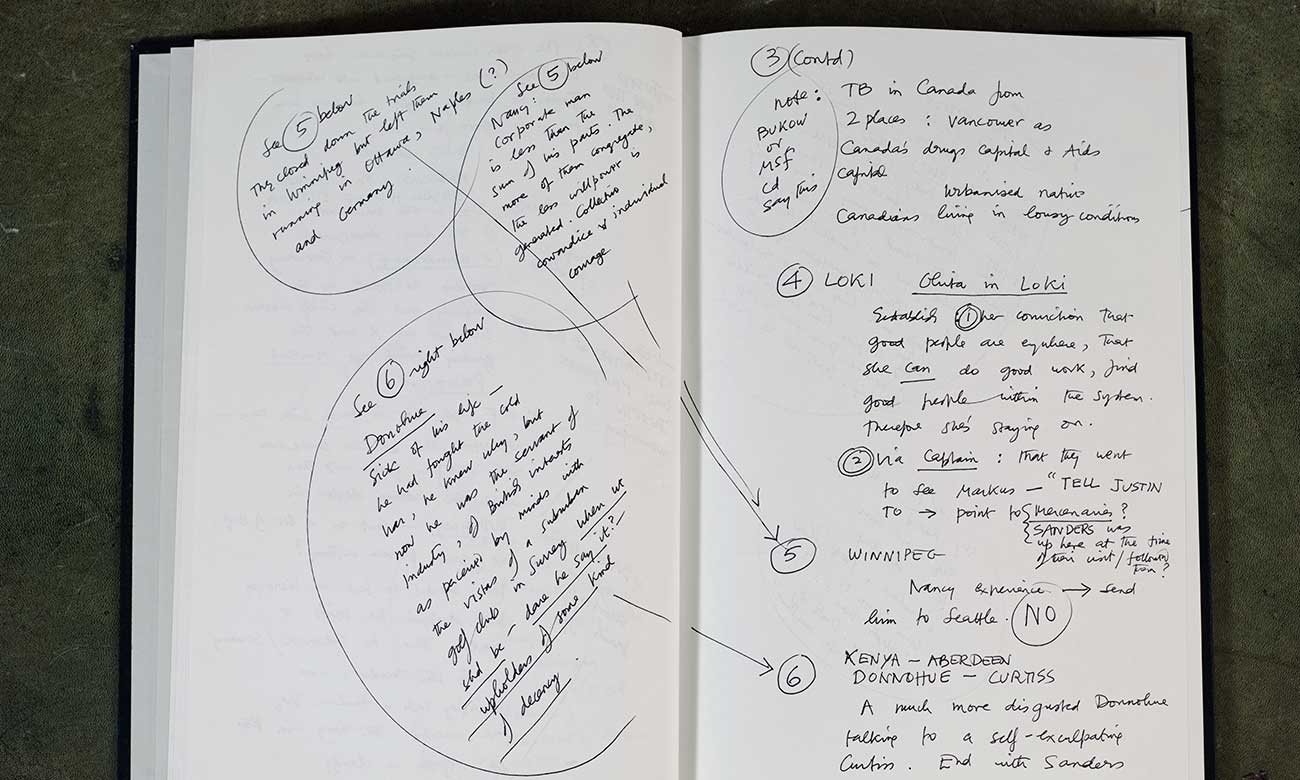 See 5 below
They closed down the trials
in Winnipeg but left them
running in Ottawa, Naples (?)
and Germany.
See 5 below
Nancy:
Corporate man
is less than the
sum of his parts. The
more of them congregate,
the less willpower is
generated. Collective
cowardice v individual
courage
See 6 right below
Donohue
Sick of his life –
he had fought the cold
war, he knew why, but
now he was the servant of
Industry, of British interests
as perceived by minds with
the vistas of a suburban
golf club in Surrey when we
shd be – dare he say it? –
upholders of some kind
of decency.
3 (Contd)
note: TB in Canada from
BUKOW
or
MSF
cd
say this
2 places: Vancouver as
Canada's drugs capital & Aids
capital
Urbanised native
Canadians living in lousy conditions
4 LOKI Ghita in Loki
Establish 1 her conviction that
good people are eywhere, that
she can do good work, find
good people within the system.
Therefore she's staying on.
2 Via Captain: that they went
to see Markus – "TELL JUSTIN
TO → point to { Mercenaries?
{ SANDERS was
up here at the time
of their visit / following
them?
5 WINNIPEG
Nancy experience → send
him to Seattle. NO
6 KENYA – ABERDEEN
DONNOHUE – CURTISS
A much more disgusted Donnohue
talking to a self-exculpating
Curtiss. End with Sanders